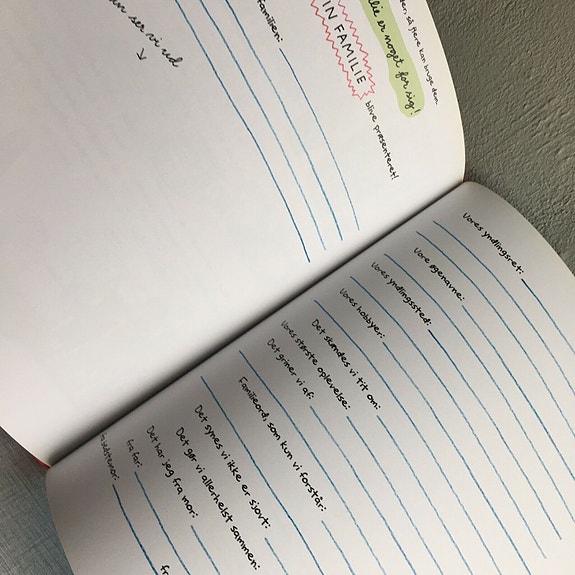 så flere kan bruge den.
lie er noget for sig!
IN FAMILIE
blive præsenteret!
familien:
ser vi ud
Vores yndlingsret:
Vore øgenavne:
Vores yndlingssted:
Vores hobbyer:
Det skændes vi tit om:
Vores største oplevelse:
Det griner vi af:
Familieord, som kun vi forstår:
Det synes vi ikke er sjovt:
Det gør vi allerhelst sammen:
Det har jeg fra mor:
fra far: